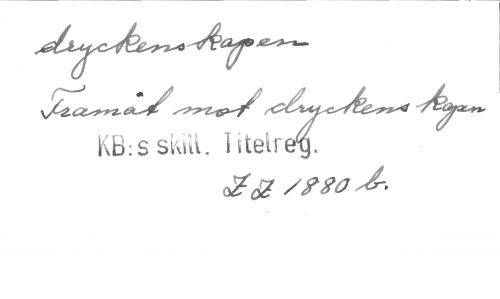 dryckenskapen
Framåt mot dryckenskapen
KB:s skill. Titelreg.
ZZ 1880 b.